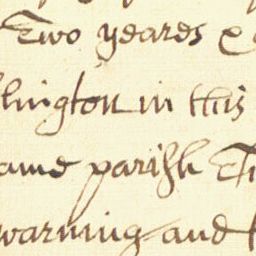 Two yeares
lington in this
ame parish
warning and